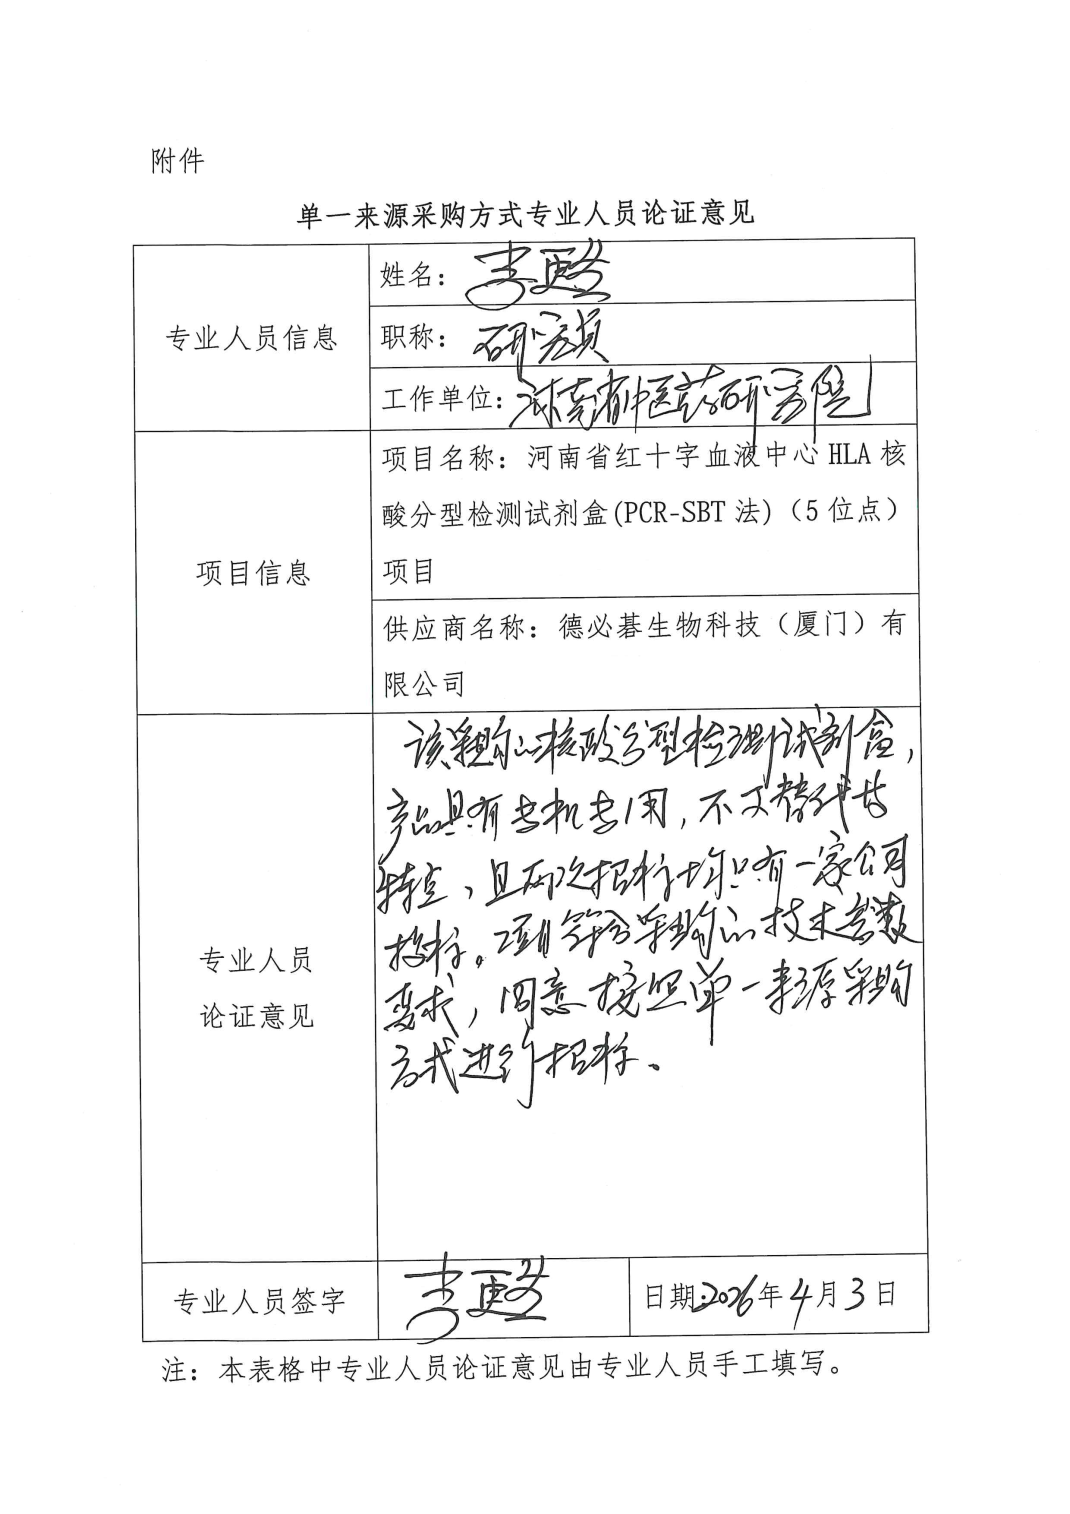 附件
单一来源采购方式专业人员论证意见
专业人员信息
姓名：李更生
职称：研究员
工作单位：河南省中医药研究院
项目信息
项目名称：河南省红十字血液中心 HLA 核
酸分型检测试剂盒(PCR-SBT 法)（5 位点）
项目
供应商名称：德必碁生物科技（厦门）有
限公司
专业人员
论证意见
该采购的核酸分型检测试剂盒，
产品具有专机专用，不可替代的
特点，且两次招标均只有一家公司
投标。符合采购的技术参数
要求，同意按照单一来源采购
方式进行招标。
专业人员签字
李更生
日期：2026年4月3日
注：本表格中专业人员论证意见由专业人员手工填写。